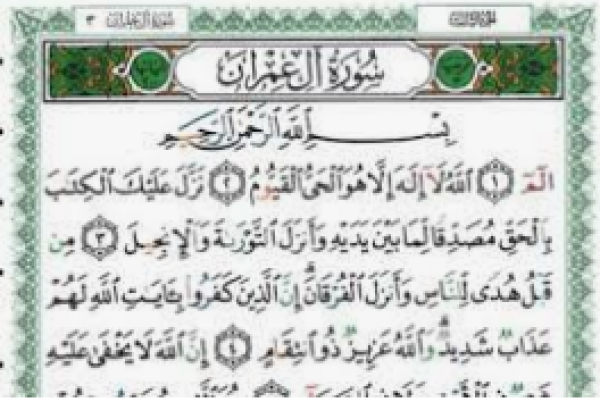 الجزء الثالث
سورة آل عمران ٣
سُورَةُ آلِ عِمْرَانَ
بِسْمِ ٱللَّهِ ٱلرَّحْمَٰنِ ٱلرَّحِيمِ
الٓمٓ ١ ٱللَّهُ لَآ إِلَٰهَ إِلَّا هُوَ ٱلْحَىُّ ٱلْقَيُّومُ ٢ نَزَّلَ عَلَيْكَ ٱلْكِتَٰبَ
بِٱلْحَقِّ مُصَدِّقًا لِّمَا بَيْنَ يَدَيْهِ وَأَنزَلَ ٱلتَّوْرَىٰةَ وَٱلْإِنجِيلَ ٣ مِن
قَبْلُ هُدًى لِّلنَّاسِ وَأَنزَلَ ٱلْفُرْقَانَ ۗ إِنَّ ٱلَّذِينَ كَفَرُوا۟ بِـَٔايَٰتِ ٱللَّهِ لَهُمْ
عَذَابٌ شَدِيدٌ ۗ وَٱللَّهُ عَزِيزٌ ذُو ٱنتِقَامٍ ٤ إِنَّ ٱللَّهَ لَا يَخْفَىٰ عَلَيْهِ